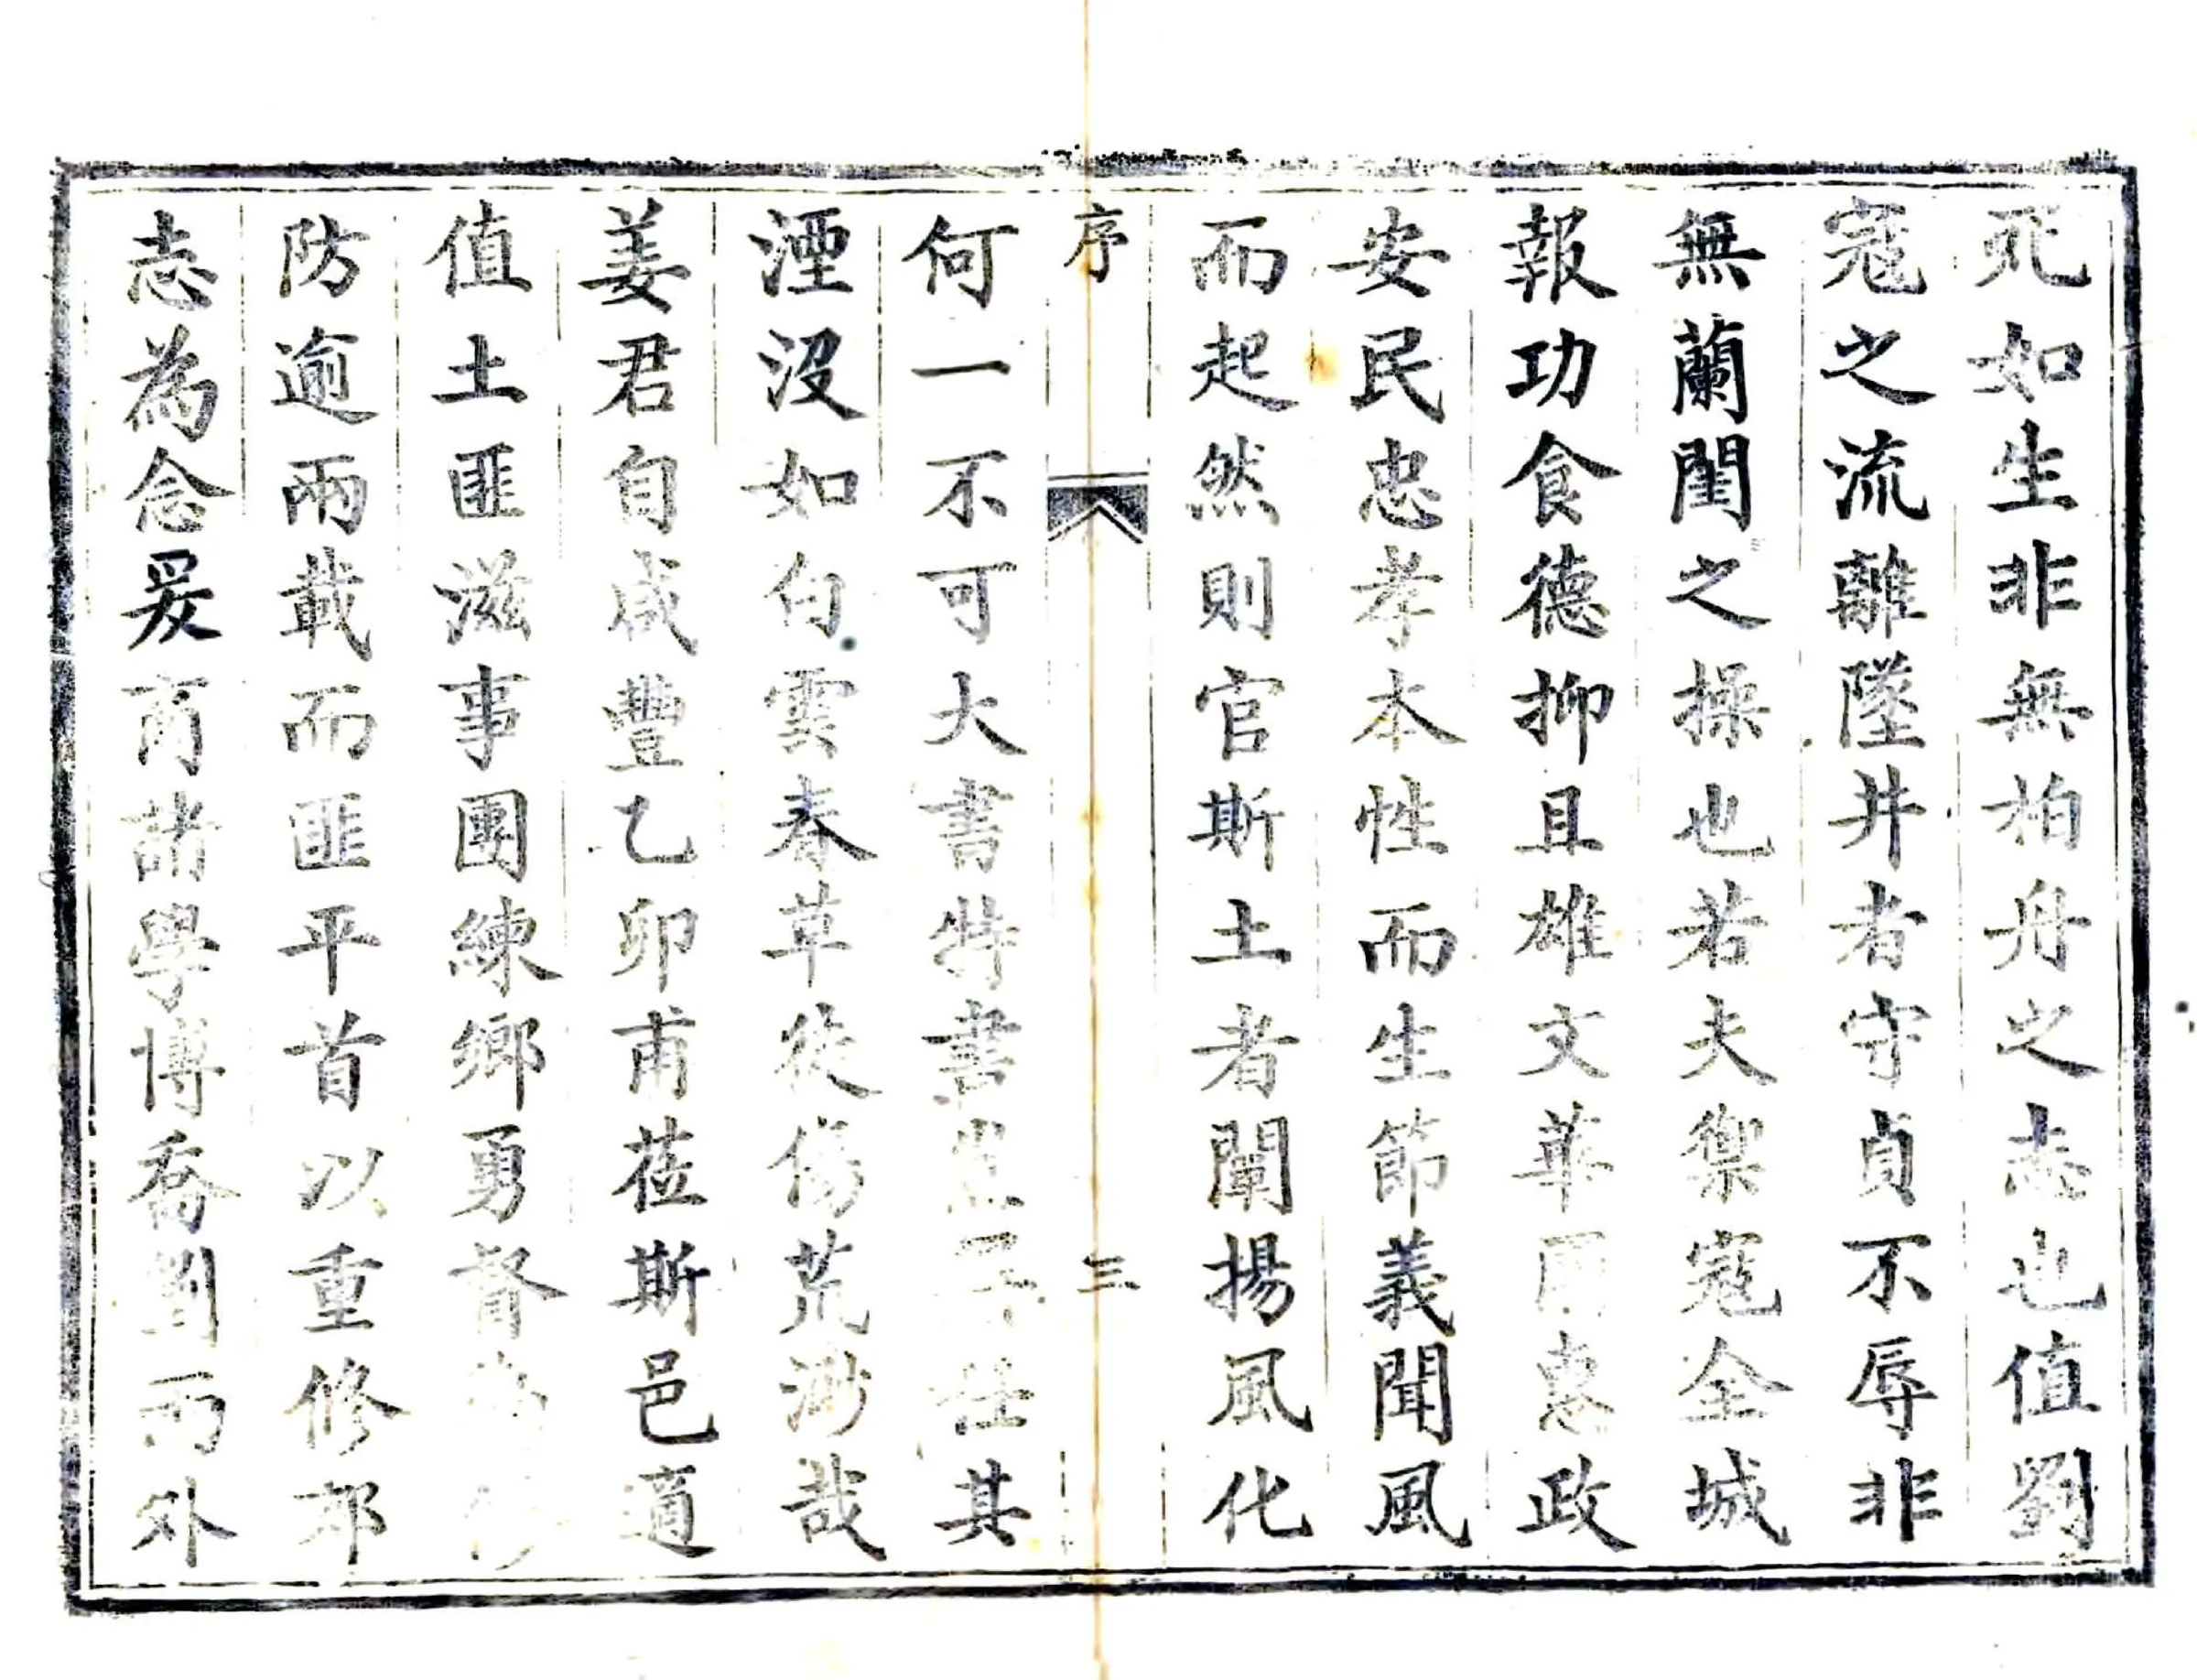 死如生非無柏舟之志也值劉
寇之流離墜井者守貞不辱非
無蘭閨之操也若夫禦寇全城
報功食德抑且雄文華國惠政
安民忠孝本性而生節義聞風
而起然則官斯土者闡揚風化
序
三
何一不可大書特書任其
湮沒如白雲春草徒傷荒渺哉
姜君自咸豐乙卯甫蒞斯邑適
值土匪滋事團練鄉勇督
防逾兩載而匪平首以重修邠
志為念爰商諸學博喬劉兩外